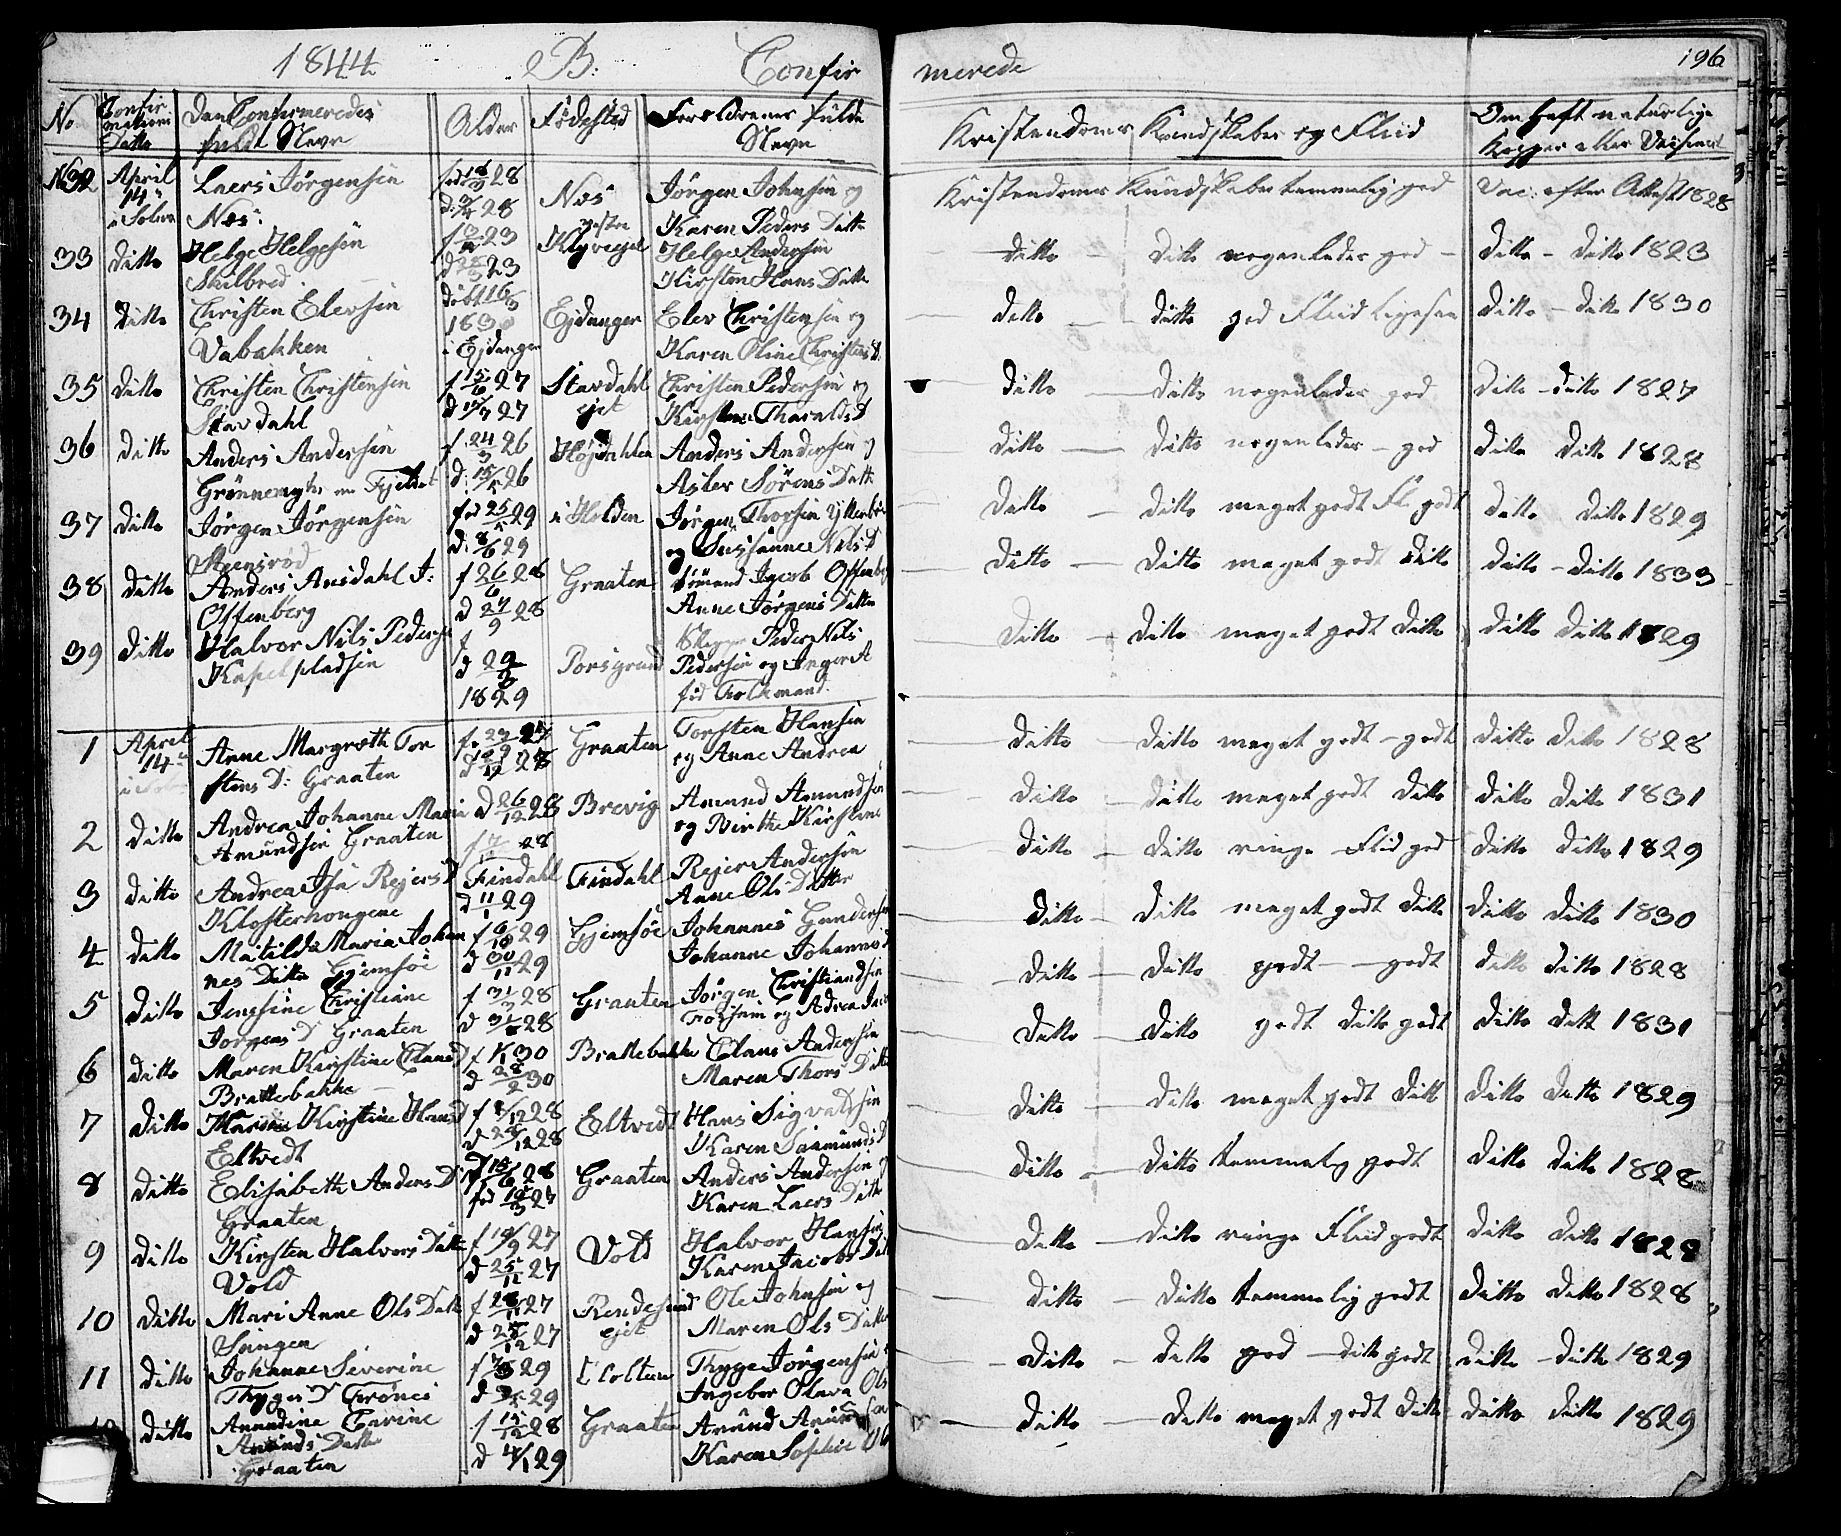 1844 B: Confir merede 196
No Confirmations Datto Den Confirmeredes fuldt Navn Alder Födested Foreldrenes fulde Navn Kristendoms Kundskaber og Fliid Om haft naturlige Kopper eller Vaksineret
32 April 14 i Solum Laers Jørgensen Næs: 28 28 Næs Jörgen Johnsen og Karen Peders Datte Kristendoms Kundskaber temmelig god Vac: efter Attest 1828
33 Ditto Helge Helgesön Skilbred 23 23 Helge Andersön Kirsten Hans Datte Ditto Ditto nogenledes god Ditto Ditto 1823
34 Ditto Christen Elevsen Vabakken döbt 16/5 1830 i Ejdanger Ejdanger Elev Christensen og Karen Oline Christens D Ditto Ditto god Fliid ligesaa Ditto Ditto 1830
35 Ditto Christen Christensen Stavdahl f 15/6 27 d 15/7 27 Stavdahl ejet Christen Pedersen og Kirsten Tharalds D Ditto Ditto nogenledes god Ditto Ditto 1827
36 Ditto Anders Andersen f. 24/3 26 d. 15/5 26 Höjdahlen Anders Andersen og Aslev Sörens Datte Ditto Ditto nogenledes god Ditto Ditto 1828
37 Ditto Jörgen Jörgensen föd 25/5 29 d. 8/6 29 i Holden Jörgen Thorsen og Susanne Nils D Ditto Ditto meget godt Fl godt Ditto Ditto 1829
38 Ditto Anders Ansdahl J: Offenberg f 26/6 28 d 27/9 28 Graaten Sömand Jacob Offenberg Anne Jörgens Datte Ditto Ditto meget godt Ditto Ditto Ditto 1833
39 Ditto Halvor Nils Pedersen Kapelpladsen f d 29 1829 Porsgrund Peder Nils Pedersen og Inger A föd Folkmand. Ditto Ditto meget godt Ditto Ditto Ditto 1829
1 April 14 Anne Margreth Torstens D: Graaten Graaten Torsten Hansen og Anne Andrea Ditto Ditto meget godt godt Ditto Ditto 1828
2 Ditto Andrea Johanne Marie Amundsen Graaten D 26/12 28 Brevig Amund Amundsen og Birthe Kirstine Ditto Ditto meget godt Ditto Ditto Ditto 1831
3 Ditto Andrea Isa Rejers D Klosterhougene Findahl d 11/1 29 Findahl Rejer Andersön Anne Ols Datter Ditto Ditto ringe Flid god Ditto Ditto 1829
4 Ditto Matilde Maria Johannes Datte Gjemsöe f 6/10 29 d 30/11 29 Gjemsöe Johannes Gundersen Johanne Johannes D Ditto Ditto meget godt Ditto Ditto Ditto 1830
5 Ditto Jensine Christiane Jorgens D Graaten f 31/3 28 d 28 Graaten Jörgen Christiansen og Adrea Ditto Ditto godt godt Ditto Ditto 1828
6 Ditto Maren Kirstine Claus D Brattebakke f 30 d 28/2 30 Brattebakke Claus Andersen Maren Thors Datte Ditto Ditto godt Ditto godt Ditto Ditto 1831
7 Ditto Karen Kirstine Hans D Eltvedt f 12 28 d 12 28 Eltvedt Hans Sigvaldsen Karen Saamunds D Ditto Ditto meget godt Ditto Ditto Ditto 1829
8 Ditto Elisabeth Anders D Graaten D 15/6 28 föd 18/3 27 Graaten Anders Andersen og Karen Laers Datte Ditto Ditto temmelig godt Ditto Ditto 1828
9 Ditto Kirsten Halvors Datte Vold f 19/9 27 d 25/11 27 Vold Halvor Hansen Karen Jacobs Datte Ditto Ditto ringe Fliid godt Ditto Ditto 1828
10 Ditto Mari Anne Ols Datte f 28/11 27 d 25/12 27 ejet Ole Johnsen og Maren Ols Datte Ditto Ditto temmelig godt Ditto Ditto 1828
11 Ditto Johanne Severine Thyges D f 29 d 29 Thyge Jörgensen Ingebor Olava Ols Ditto Ditto god Ditto godt Ditto Ditto 1829
Ditto Amundine Carine Amunds Datte Graaten f 15/12 28 d 4/1 29 Graaten Amund Karen Sophie Ditto Ditto meget godt Ditto Ditto Ditto 1829